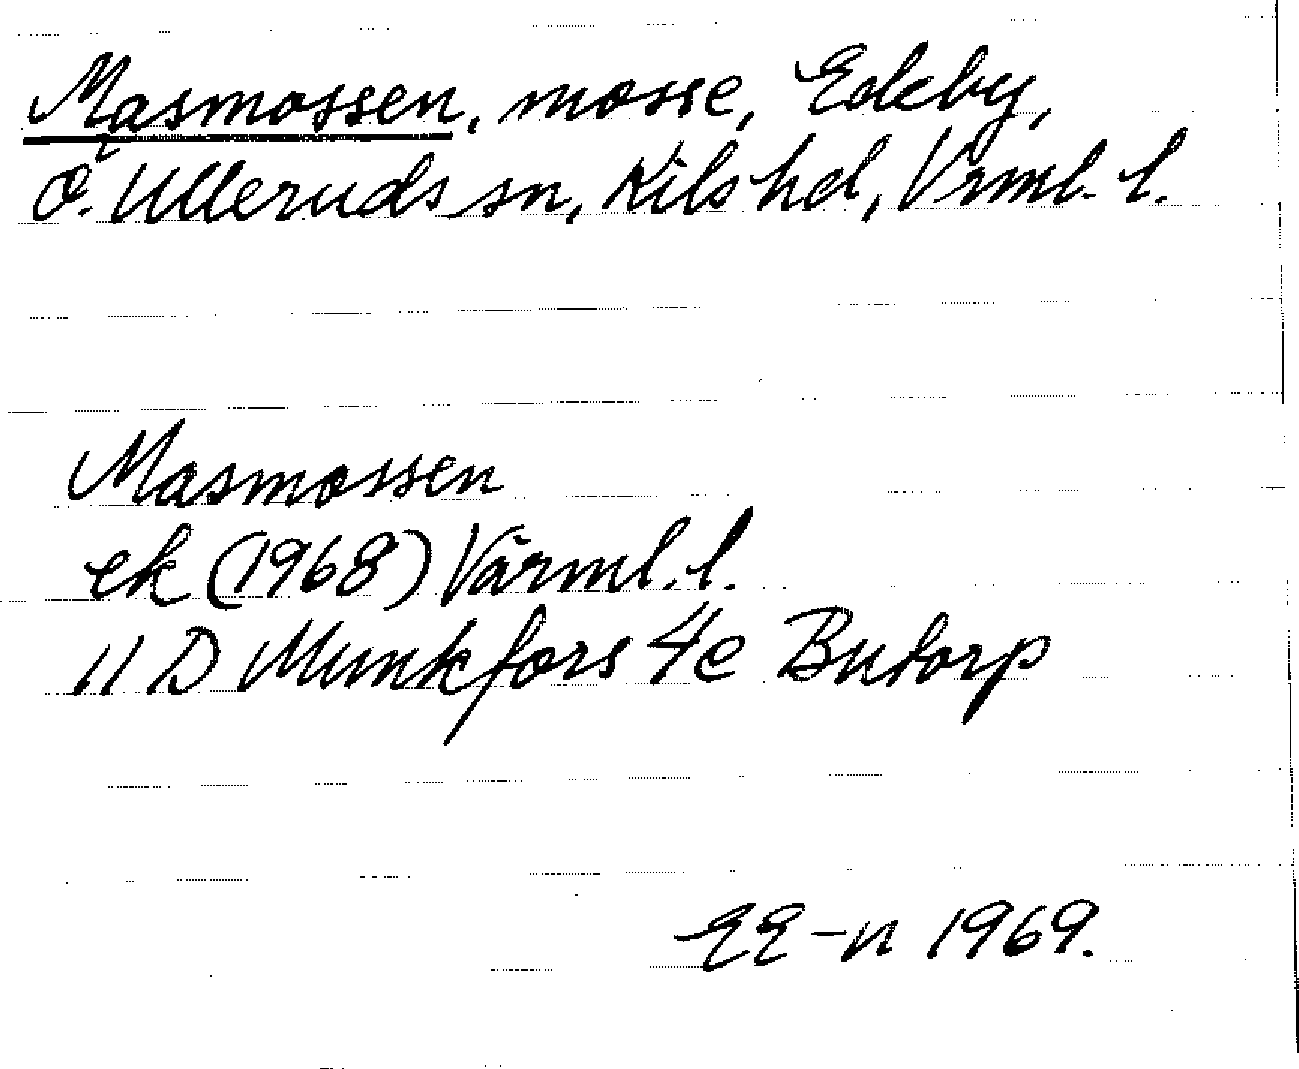 Masmossen, mosse, Edeby,
Ö. Ulleruds sn, Kils hd, Vrml. l.
Masmossen
ek (1968) Värml. l.
11 D Munkfors 4e Butorp
EE-n 1969.